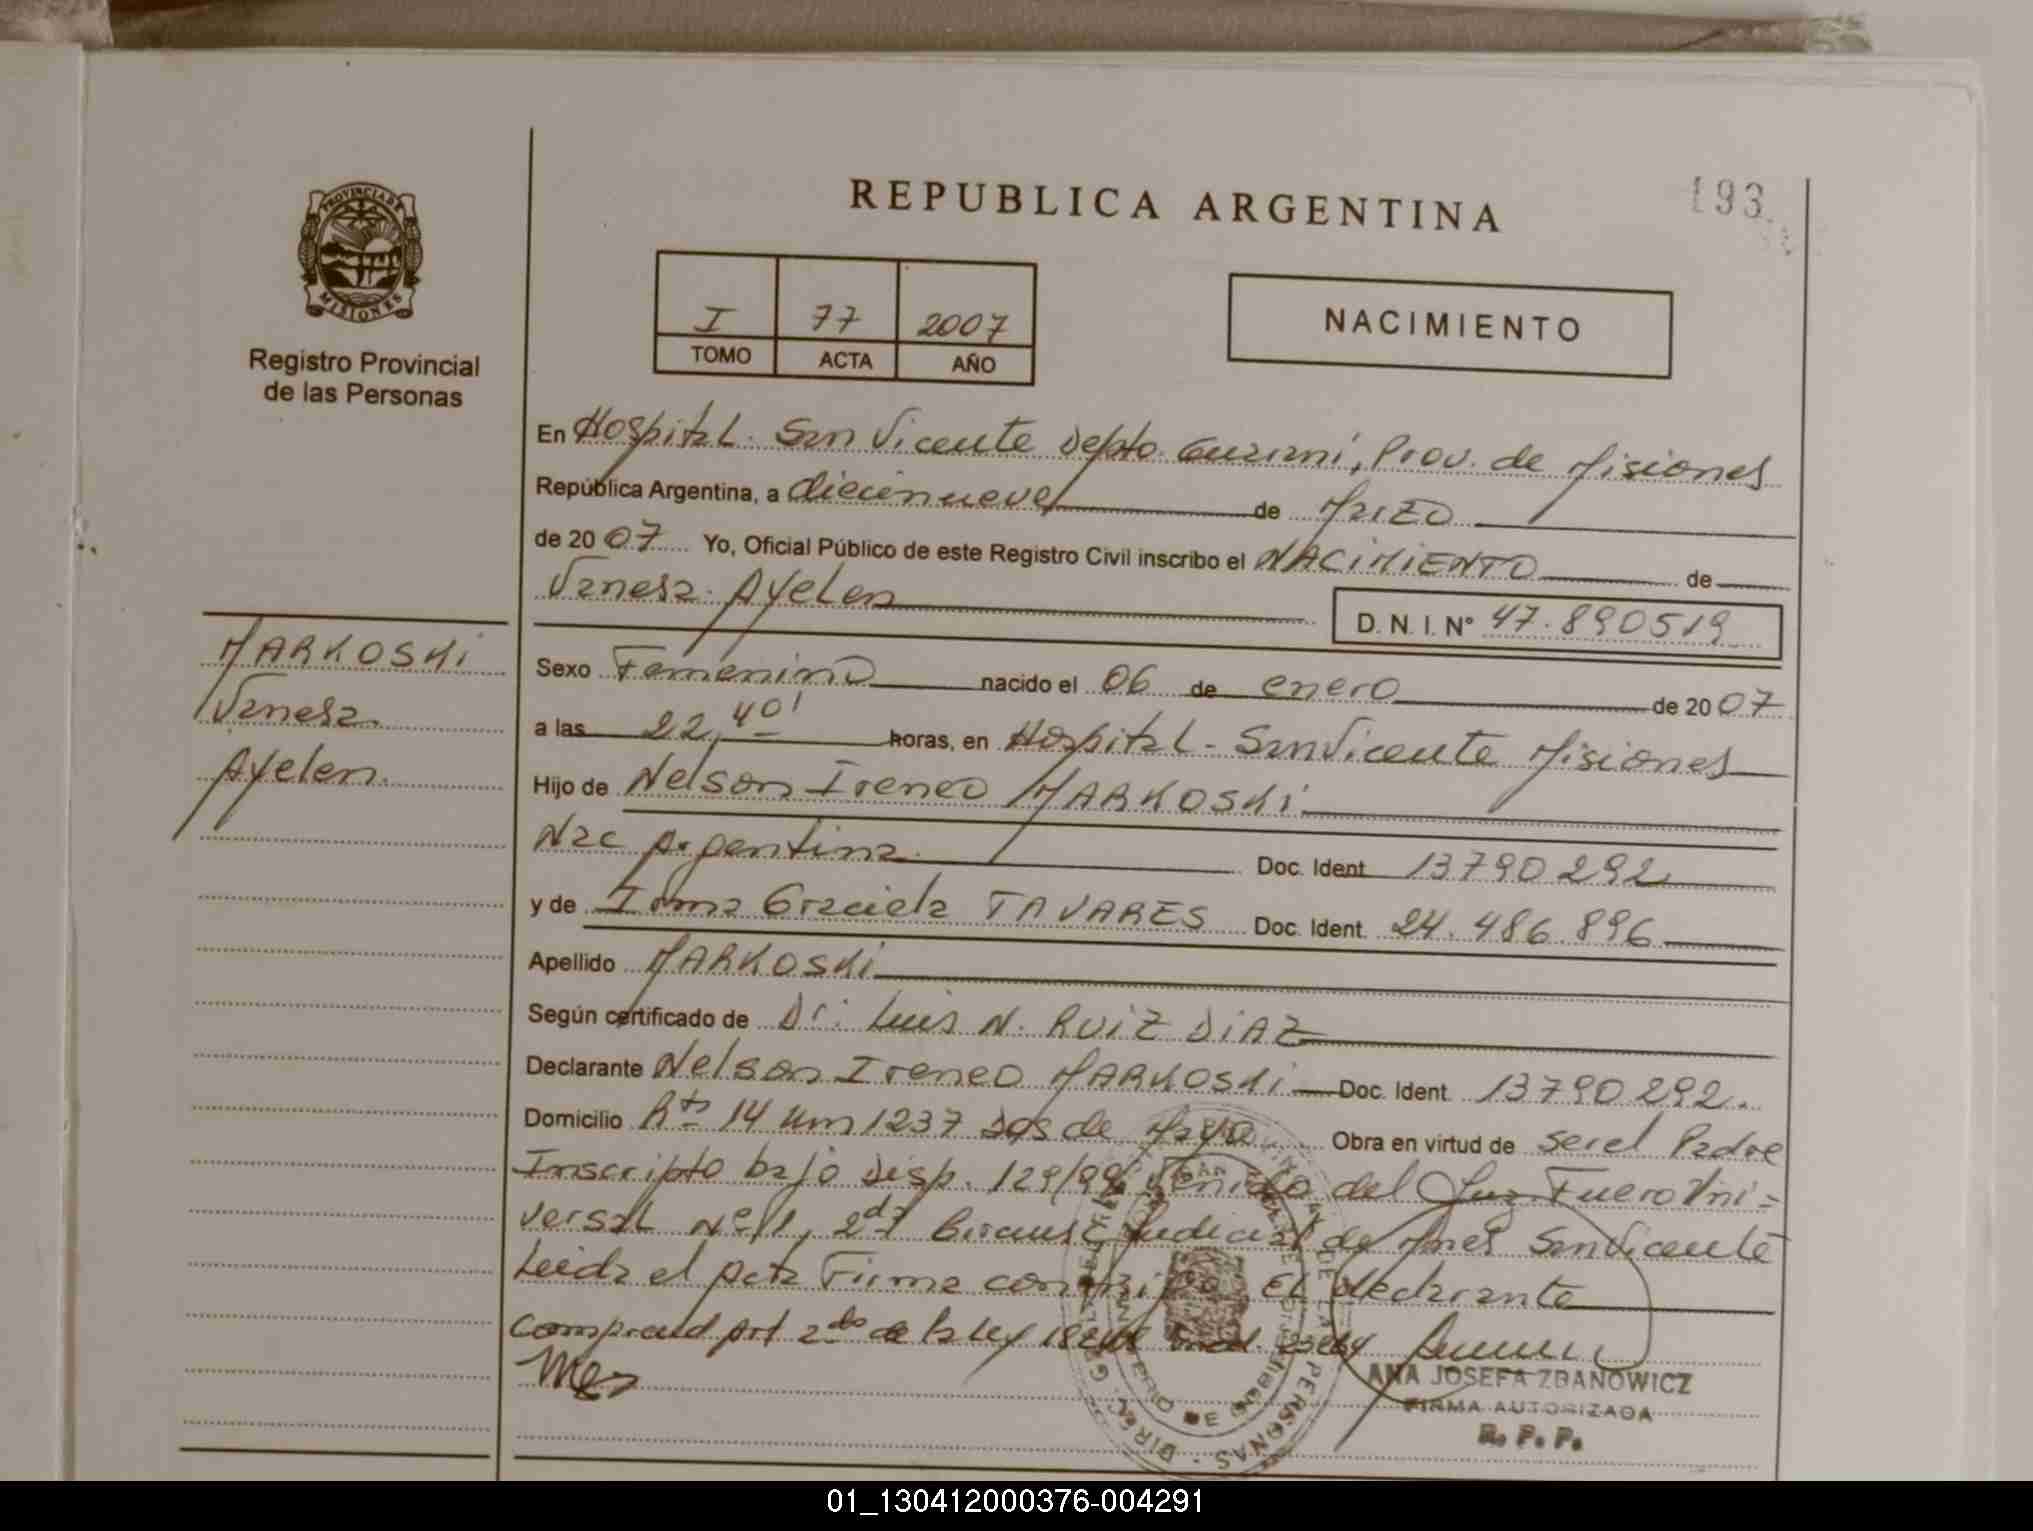 PROVINCIA DE
MISIONES
Registro Provincial
de las Personas
REPUBLICA ARGENTINA
193
I 77 2007
TOMO ACTA AÑO
NACIMIENTO
En Hospital. San Vicente Depto. Guarani, Prov. de Misiones
República Argentina, a diecinueve de Marzo
de 2007 Yo, Oficial Público de este Registro Civil inscribo el NACIMIENTO de
Vanesa Ayelen
D. N. I. N° 47.890519
MARKOSKI
Vanesa
Ayelen.
Sexo Femenino nacido el 06 de enero de 2007
a las 22,40' horas, en Hospital - San Vicente Misiones
Hijo de Nelson Ireneo MARKOSKI
Nac Argentina Doc. Ident 13790292
y de Irma Graciela TAVARES Doc. Ident. 24.486.896
Apellido MARKOSKI
Según certificado de Dr. Luis N. RUIZ DIAZ
Declarante Nelson Ireneo MARKOSKI Doc. Ident. 13790292.
Domicilio Rta 14 Km 1237 Dos de Mayo Obra en virtud de ser el Padre
Inscripto bajo Disp. 129/99 del Fuero Uni-
versal Nº 1, 2da Judicial de Mnes San Vicente
Leida el Acta Firma conmigo El declarante
Art 2do de la Ley
ANA JOSEFA ZDANOWICZ
FIRMA AUTORIZADA
R. P. P.
01_130412000376-004291